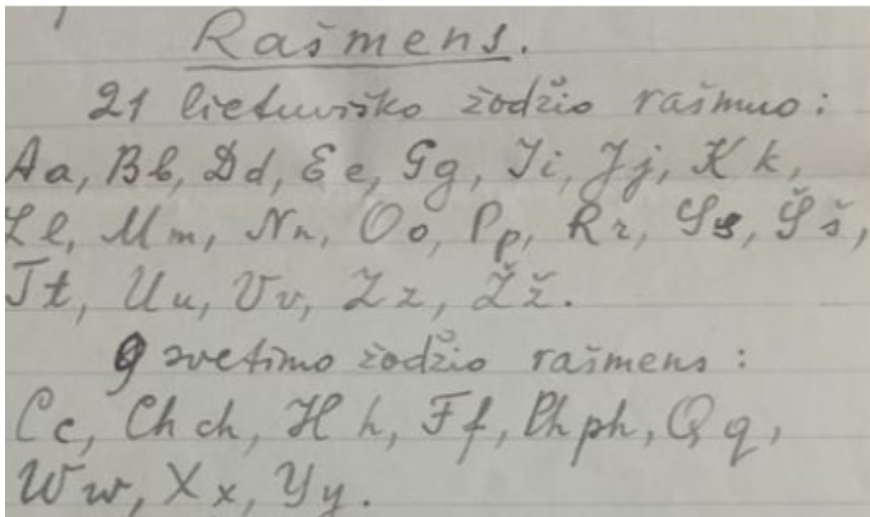 Rašmens.
21 lietuviško žodžio rašmuo:
Aa, Bb, Dd, Ee, Gg, Ii, Jj, Kk,
Ll, Mm, Nn, Oo, Pp, Rr, Ss, Šš,
Tt, Uu, Vv, Zz, Žž.
9 svetimo žodžio rašmens:
Cc, Ch ch, Hh, Ff, Ph ph, Qq,
Ww, Xx, Yy.